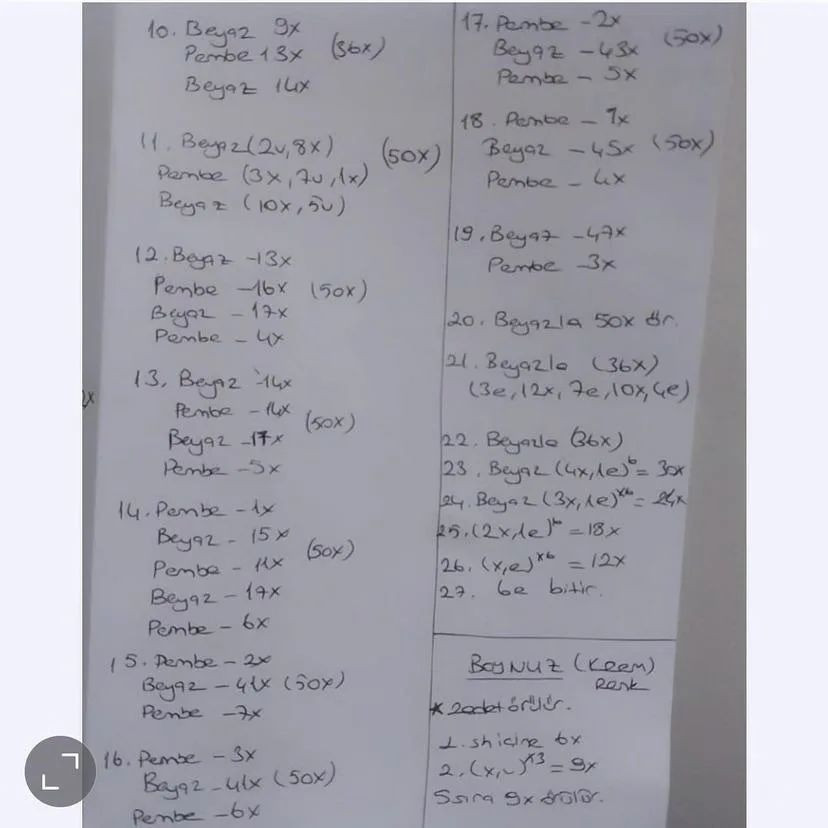 10. Beyaz 9x
Pembe 13x (36x)
Beyaz 14x
11. Beyaz (2v, 8x)
Pembe (3x, 7v, 1x) (50x)
Beyaz (10x, 5v)
12. Beyaz -13x
Pembe -16x (50x)
Beyaz - 17x
Pembe - 4x
13. Beyaz -14x
Pembe - 14x (50x)
Beyaz -17x
Pembe - 5x
14. Pembe - 1x
Beyaz - 15x
Pembe - 11x (50x)
Beyaz - 17x
Pembe - 6x
15. Pembe - 2x
Beyaz - 41x (50x)
Pembe - 7x
16. Pembe - 3x
Beyaz - 41x (50x)
Pembe - 6x
17. Pembe - 2x
Beyaz - 43x (50x)
Pembe - 5x
18. Pembe - 1x
Beyaz - 45x (50x)
Pembe - 4x
19. Beyaz - 47x
Pembe - 3x
20. Beyazla 50x ör.
21. Beyazla (36x)
(3e, 12x, 7e, 10x, 4e)
22. Beyazla (36x)
23. Beyaz (4x, 1e)⁶ = 30x
24. Beyaz (3x, 1e)ˣ⁶ = 24x
25. (2x, 1e)⁶ = 18x
26. (x, e)ˣ⁶ = 12x
27. 6e bitir.
BOYNUZ (Krem)
Renk
* 2 adet örülür.
1. s.h içine 6x
2. (x, v)ˣ³ = 9x
5 sıra 9x örülür.